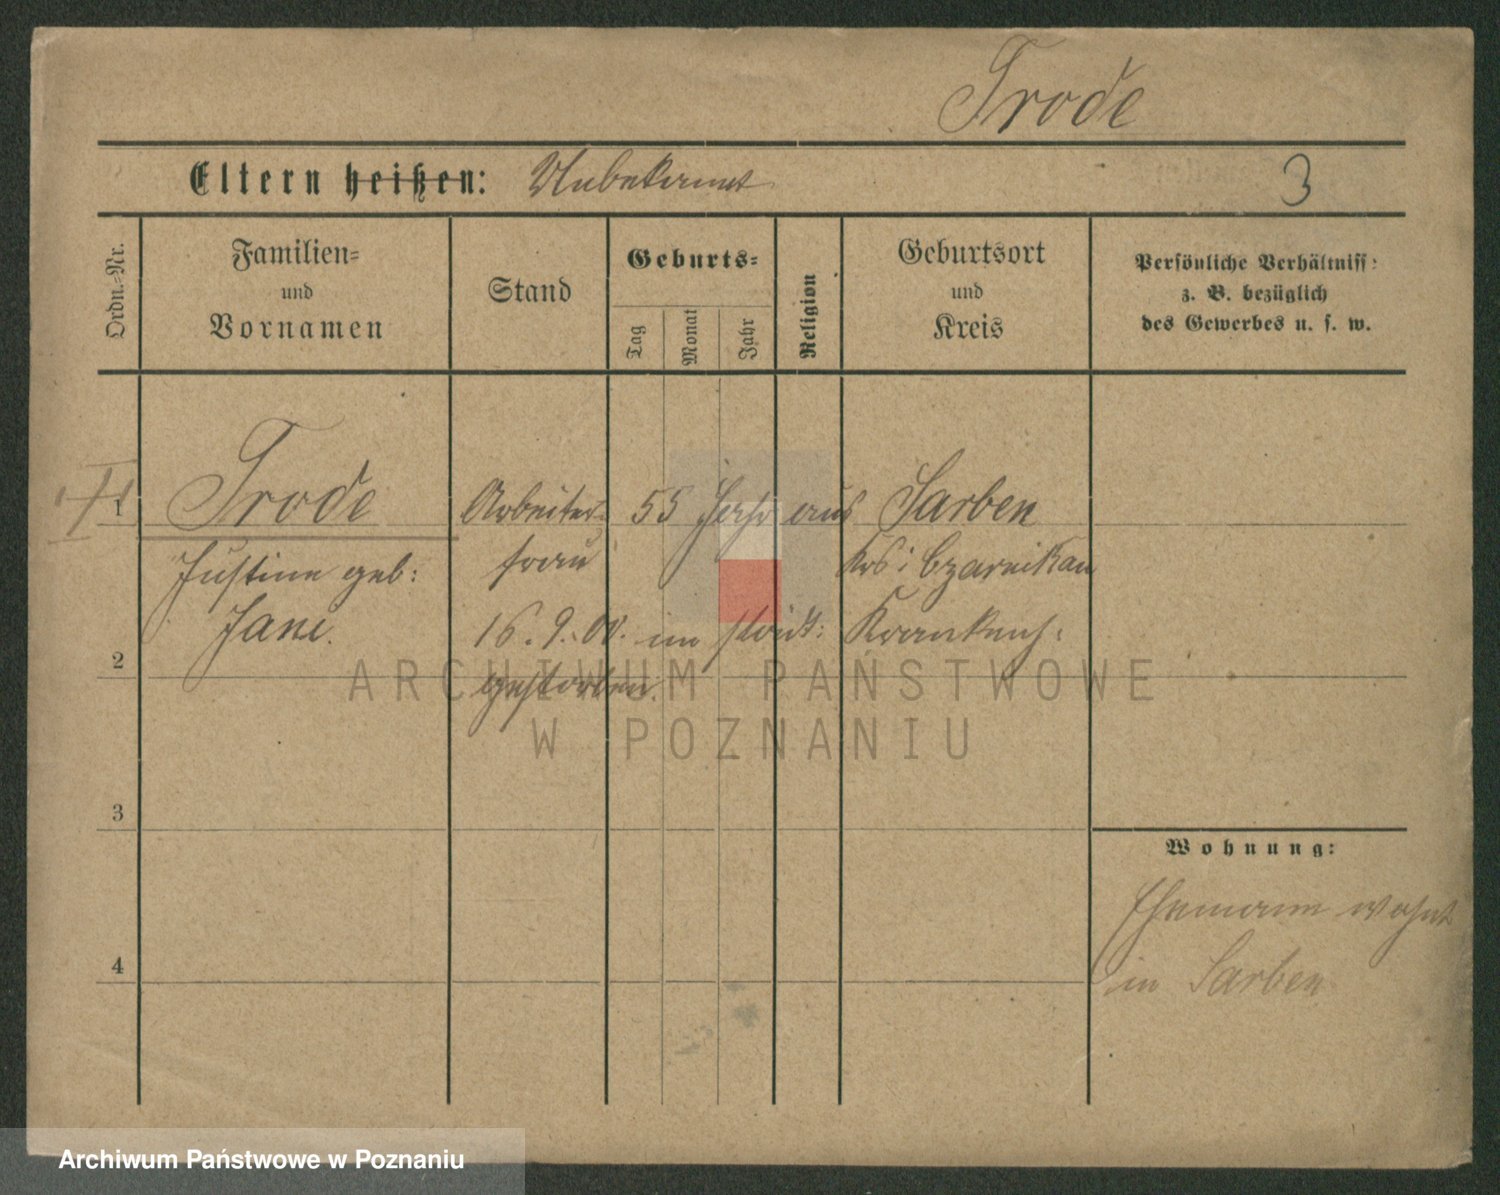 Trode
Eltern heißen: Unbekannt
3
Ordn.-Nr.
Familien-
und
Vornamen
Stand
Geburts-
Tag
Monat
Jahr
Religion
Geburtsort
und
Kreis
Persönliche Verhältniss:
z. B. bezüglich
des Gewerbes u. s. w.
1
Trode
Arbeiter- 55 Jahr aus Sarben
Justine geb:
frau
Krs: Czarnikau
Jane.
16. 9. 00. im städt: Krankenh:
2
gestorben.
ARCHIWUM PAŃSTWOWE
W POZNANIU
3
Wohnung:
Ehemann wohnt
in Sarben
4
Archiwum Państwowe w Poznaniu